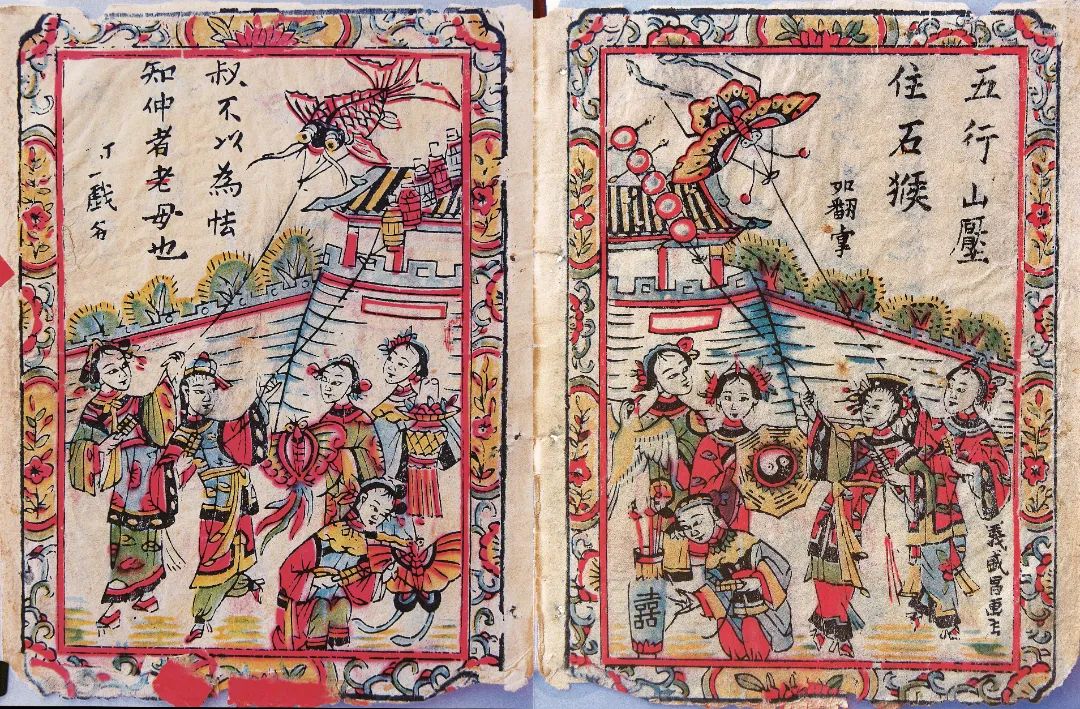 五行山壓
住石猴
如翻掌
義盛昌
囍
叔不以為怯
知仲者老母也
一戲名